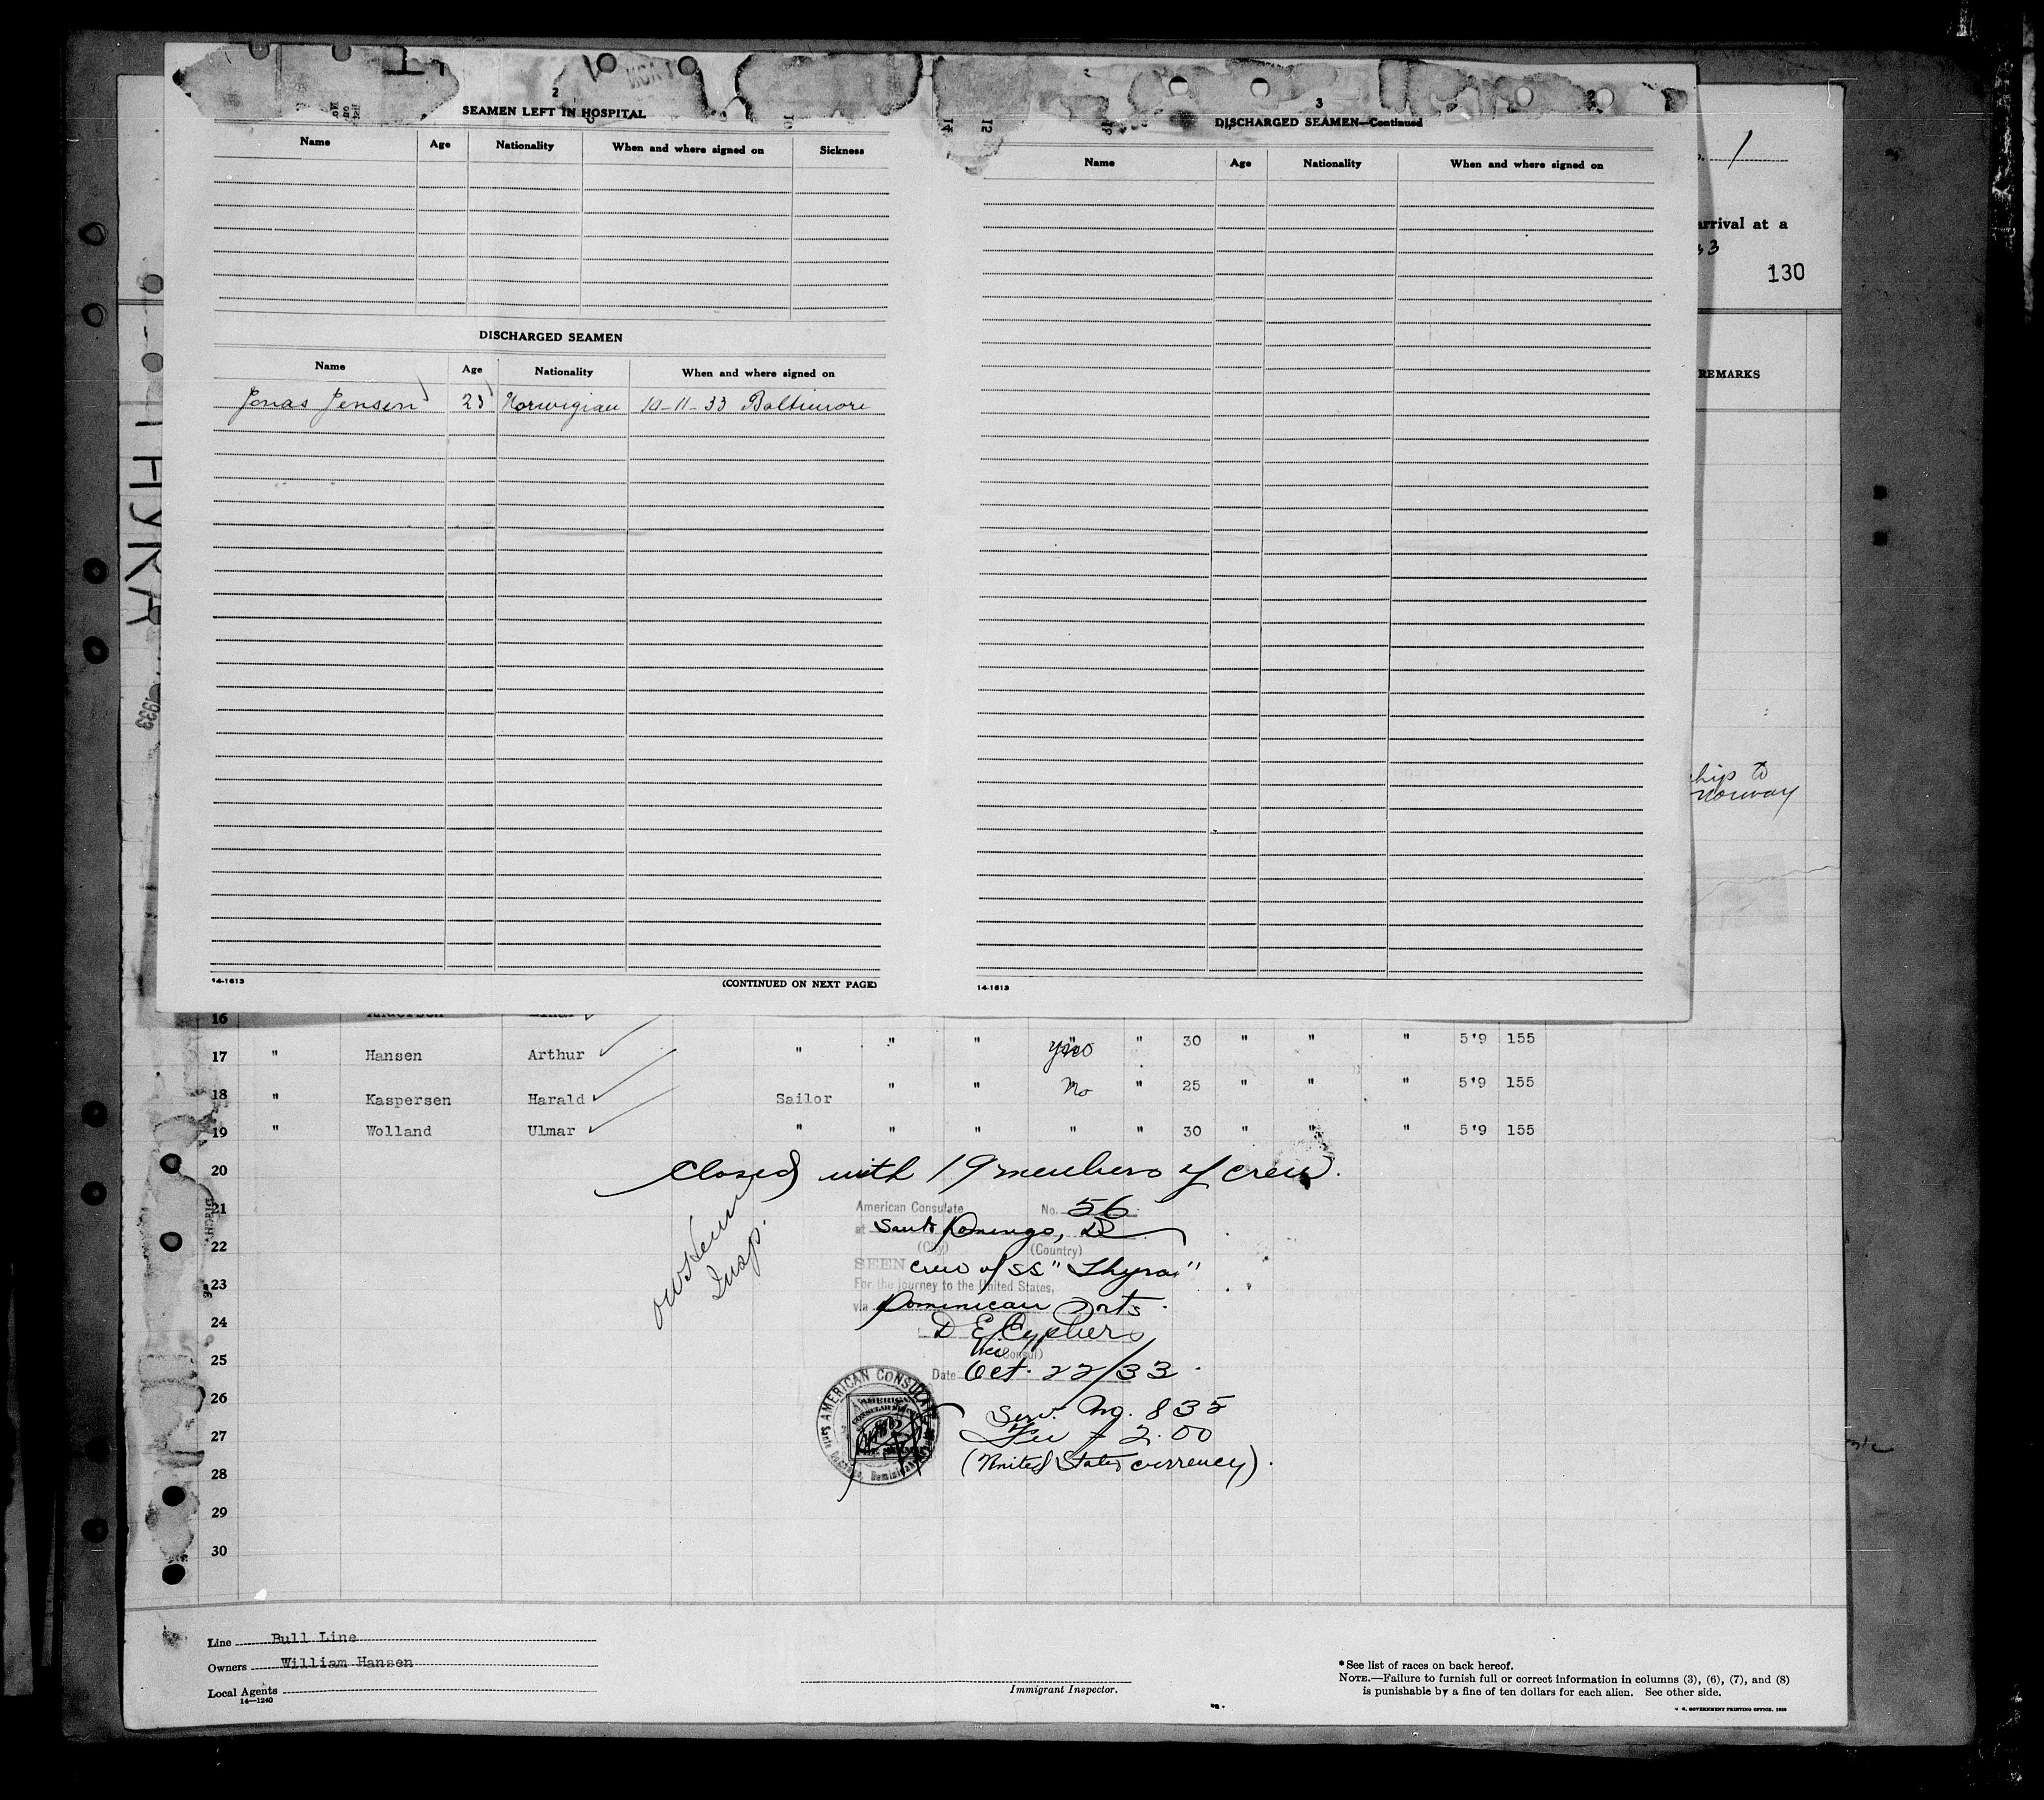 2
SEAMEN LEFT IN HOSPITAL
Name Age Nationality When and where signed on Sickness
DISCHARGED SEAMEN
Name Age Nationality When and where signed on
Jonas Jensen 23 Norwigian 10-11-33 Baltimore
14-1613 (CONTINUED ON NEXT PAGE)
3
DISCHARGED SEAMEN—Continued
Name Age Nationality When and where signed on
14-1613
1
arrival at a
33
130
REMARKS
ship to
Norway
THYRA
1933
16
17 " Hansen Arthur " " " " 30 " " " 5'9 155
18 " Kaspersen Harald Sailor " " No " 25 " " " 5'9 155
19 " Wolland Ulmar " " " " " 30 " " " 5'9 155
20
Closed with 19 members of crew.
21
American Consulate No. 56
at Santo Domingo, D
22
(City) (Country)
SEEN crew of SS "Thyra"
23
For the journey to the United States,
via Dominican Ports.
24
D E Cyphers
Vice (Consul)
25
Date Oct. 22/33
Insp.
26
Serv. No. 835
27
Fee $ 2.00
(United States currency).
28
29
30
AMERICAN CONSULATE
Line Bull Line
Owners William Hansen
Local Agents
14—1240
Immigrant Inspector.
*See list of races on back hereof.
NOTE.—Failure to furnish full or correct information in columns (3), (6), (7), and (8)
is punishable by a fine of ten dollars for each alien. See other side.